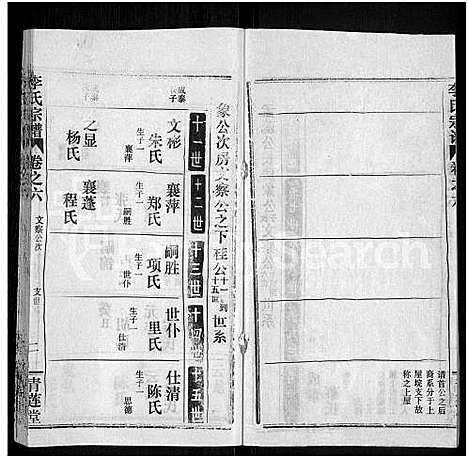 李氏宗谱
卷之六
请首公之后
裔系分于上
屋垸支下故
称之上屋
象公次房文察公之下程公十一到十五世系
十一世
十二世
十三世
十四世
十五世
成泰
子
文彬
朱氏
生子一
襄萍
之显
杨氏
襄萍
郑氏
生子一
嗣胜
襄蓬
程氏
嗣胜
项氏
生子一
世仆
世仆
里氏
生子一
仕清
仕清
陈氏
生子一
思德
李氏宗谱
卷之六
文察公次
支世
一
青莲堂